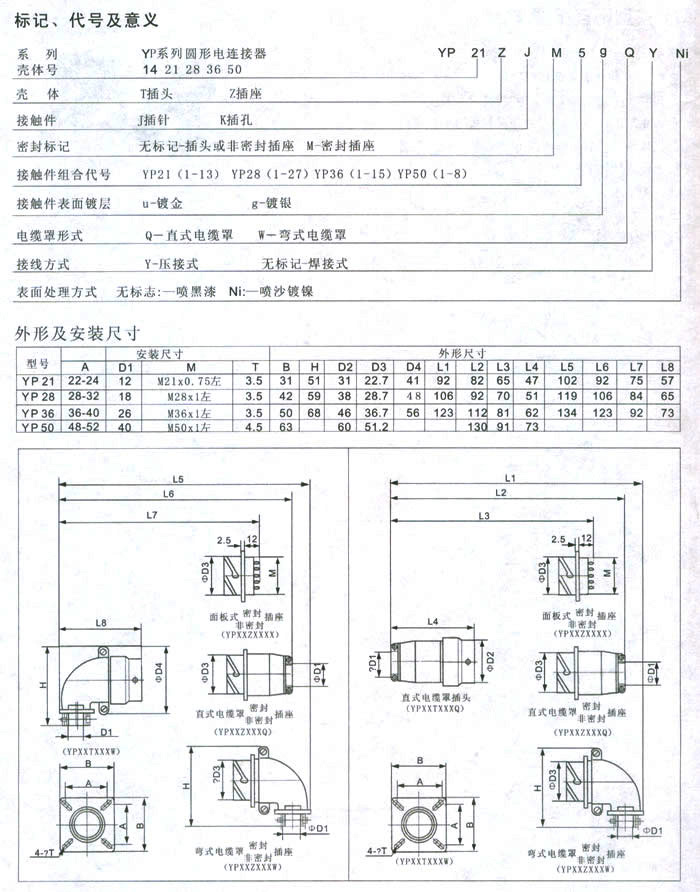 标记、代号及意义
系 列 YP系列圆形电连接器 YP 21 Z J M 5 g Q Y Ni
壳体号 14 21 28 36 50
壳 体 T插头 Z插座
接触件 J插针 K插孔
密封标记 无标记-插头或非密封插座 M-密封插座
接触件组合代号 YP21（1-13） YP28（1-27）YP36（1-15）YP50（1-8）
接触件表面镀层 u-镀金 g-镀银
电缆罩形式 Q－直式电缆罩 W－弯式电缆罩
接线方式 Y-压接式 无标记-焊接式
表面处理方式 无标志:—喷黑漆 Ni:—喷沙镀镍
外形及安装尺寸
型号 安装尺寸 外形尺寸
A D1 M T B H D2 D3 D4 L1 L2 L3 L4 L5 L6 L7 L8
YP 21 22-24 12 M21x0.75左 3.5 31 51 31 22.7 41 92 82 65 47 102 92 75 57
YP 28 28-32 18 M28x1左 3.5 42 59 38 28.7 48 106 92 70 51 119 106 84 65
YP 36 36-40 26 M36x1左 3.5 50 68 46 36.7 56 123 112 81 62 134 123 92 73
YP 50 48-52 40 M50x1左 4.5 63 60 51.2 130 91 73
L5
L6
L7
2.5 12
ΦD3 M
面板式 密封 插座
非密封
(YPXXZXXXX)
L8
H ΦD4
D1
(YPXXTXXXW)
ΦD3 ΦD1
直式电缆罩 密封 插座
非密封
(YPXXZXXXQ)
B
A
A B
4-?T
H ?D3
ΦD1
弯式电缆罩 密封 插座
非密封
(YPXXZXXXW)
L1
L2
L3
2.5 12
ΦD3 M
面板式 密封 插座
非密封
(YPXXZXXXX)
L4
ΦD1 ΦD2
直式电缆罩插头
(YPXXTXXXQ)
ΦD3 ΦD1
直式电缆罩 密封 插座
非密封
(YPXXZXXXQ)
B
A
A B
4-?T
(YPXXTXXXW)
H ΦD3
ΦD1
弯式电缆罩 密封 插座
非密封
(YPXXZXXXW)